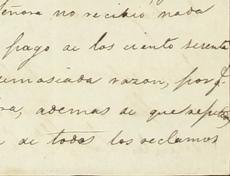 señora no recibió nada
pago de los ciento setenta
demasiada razon, por q.
ra, ademas de que
de todos los reclamos